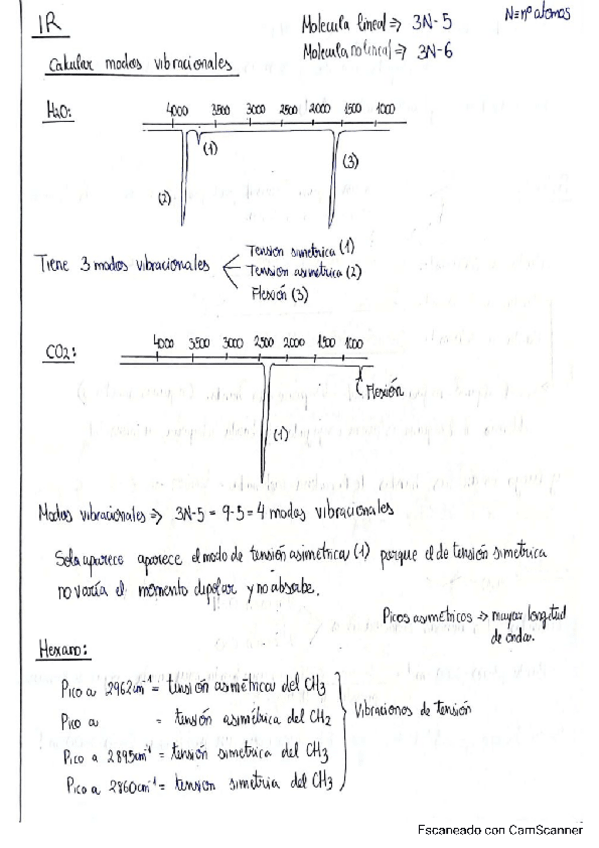 IR
Molecula lineal => 3N-5
N=nº atomos
Molecula no lineal => 3N-6
Calcular modos vibracionales
H2O:
4000 3500 3000 2500 2000 1500 1000
(1)
(2)
(3)
Tiene 3 modos vibracionales
Tension simetrica (1)
Tension asimetrica (2)
Flexión (3)
CO2:
4000 3500 3000 2500 2000 1500 1000
Flexión
(1)
Modos vibracionales => 3N-5 = 9-5 = 4 modos vibracionales
Solo aparece aparece el modo de tensión asimetrica (1) porque el de tensión simetrica
no varía el momento dipolar y no absorbe.
Picos asimetricos -> mayor longitud
de onda.
Hexano:
Pico a 2962cm-1 = tensión asimétrica del CH3
Pico a = tensión asimétrica del CH2
Pico a 2895cm-1 = tensión simetrica del CH3
Pico a 2860cm-1 = tension simetria del CH3
Vibraciones de tensión
Escaneado con CamScanner